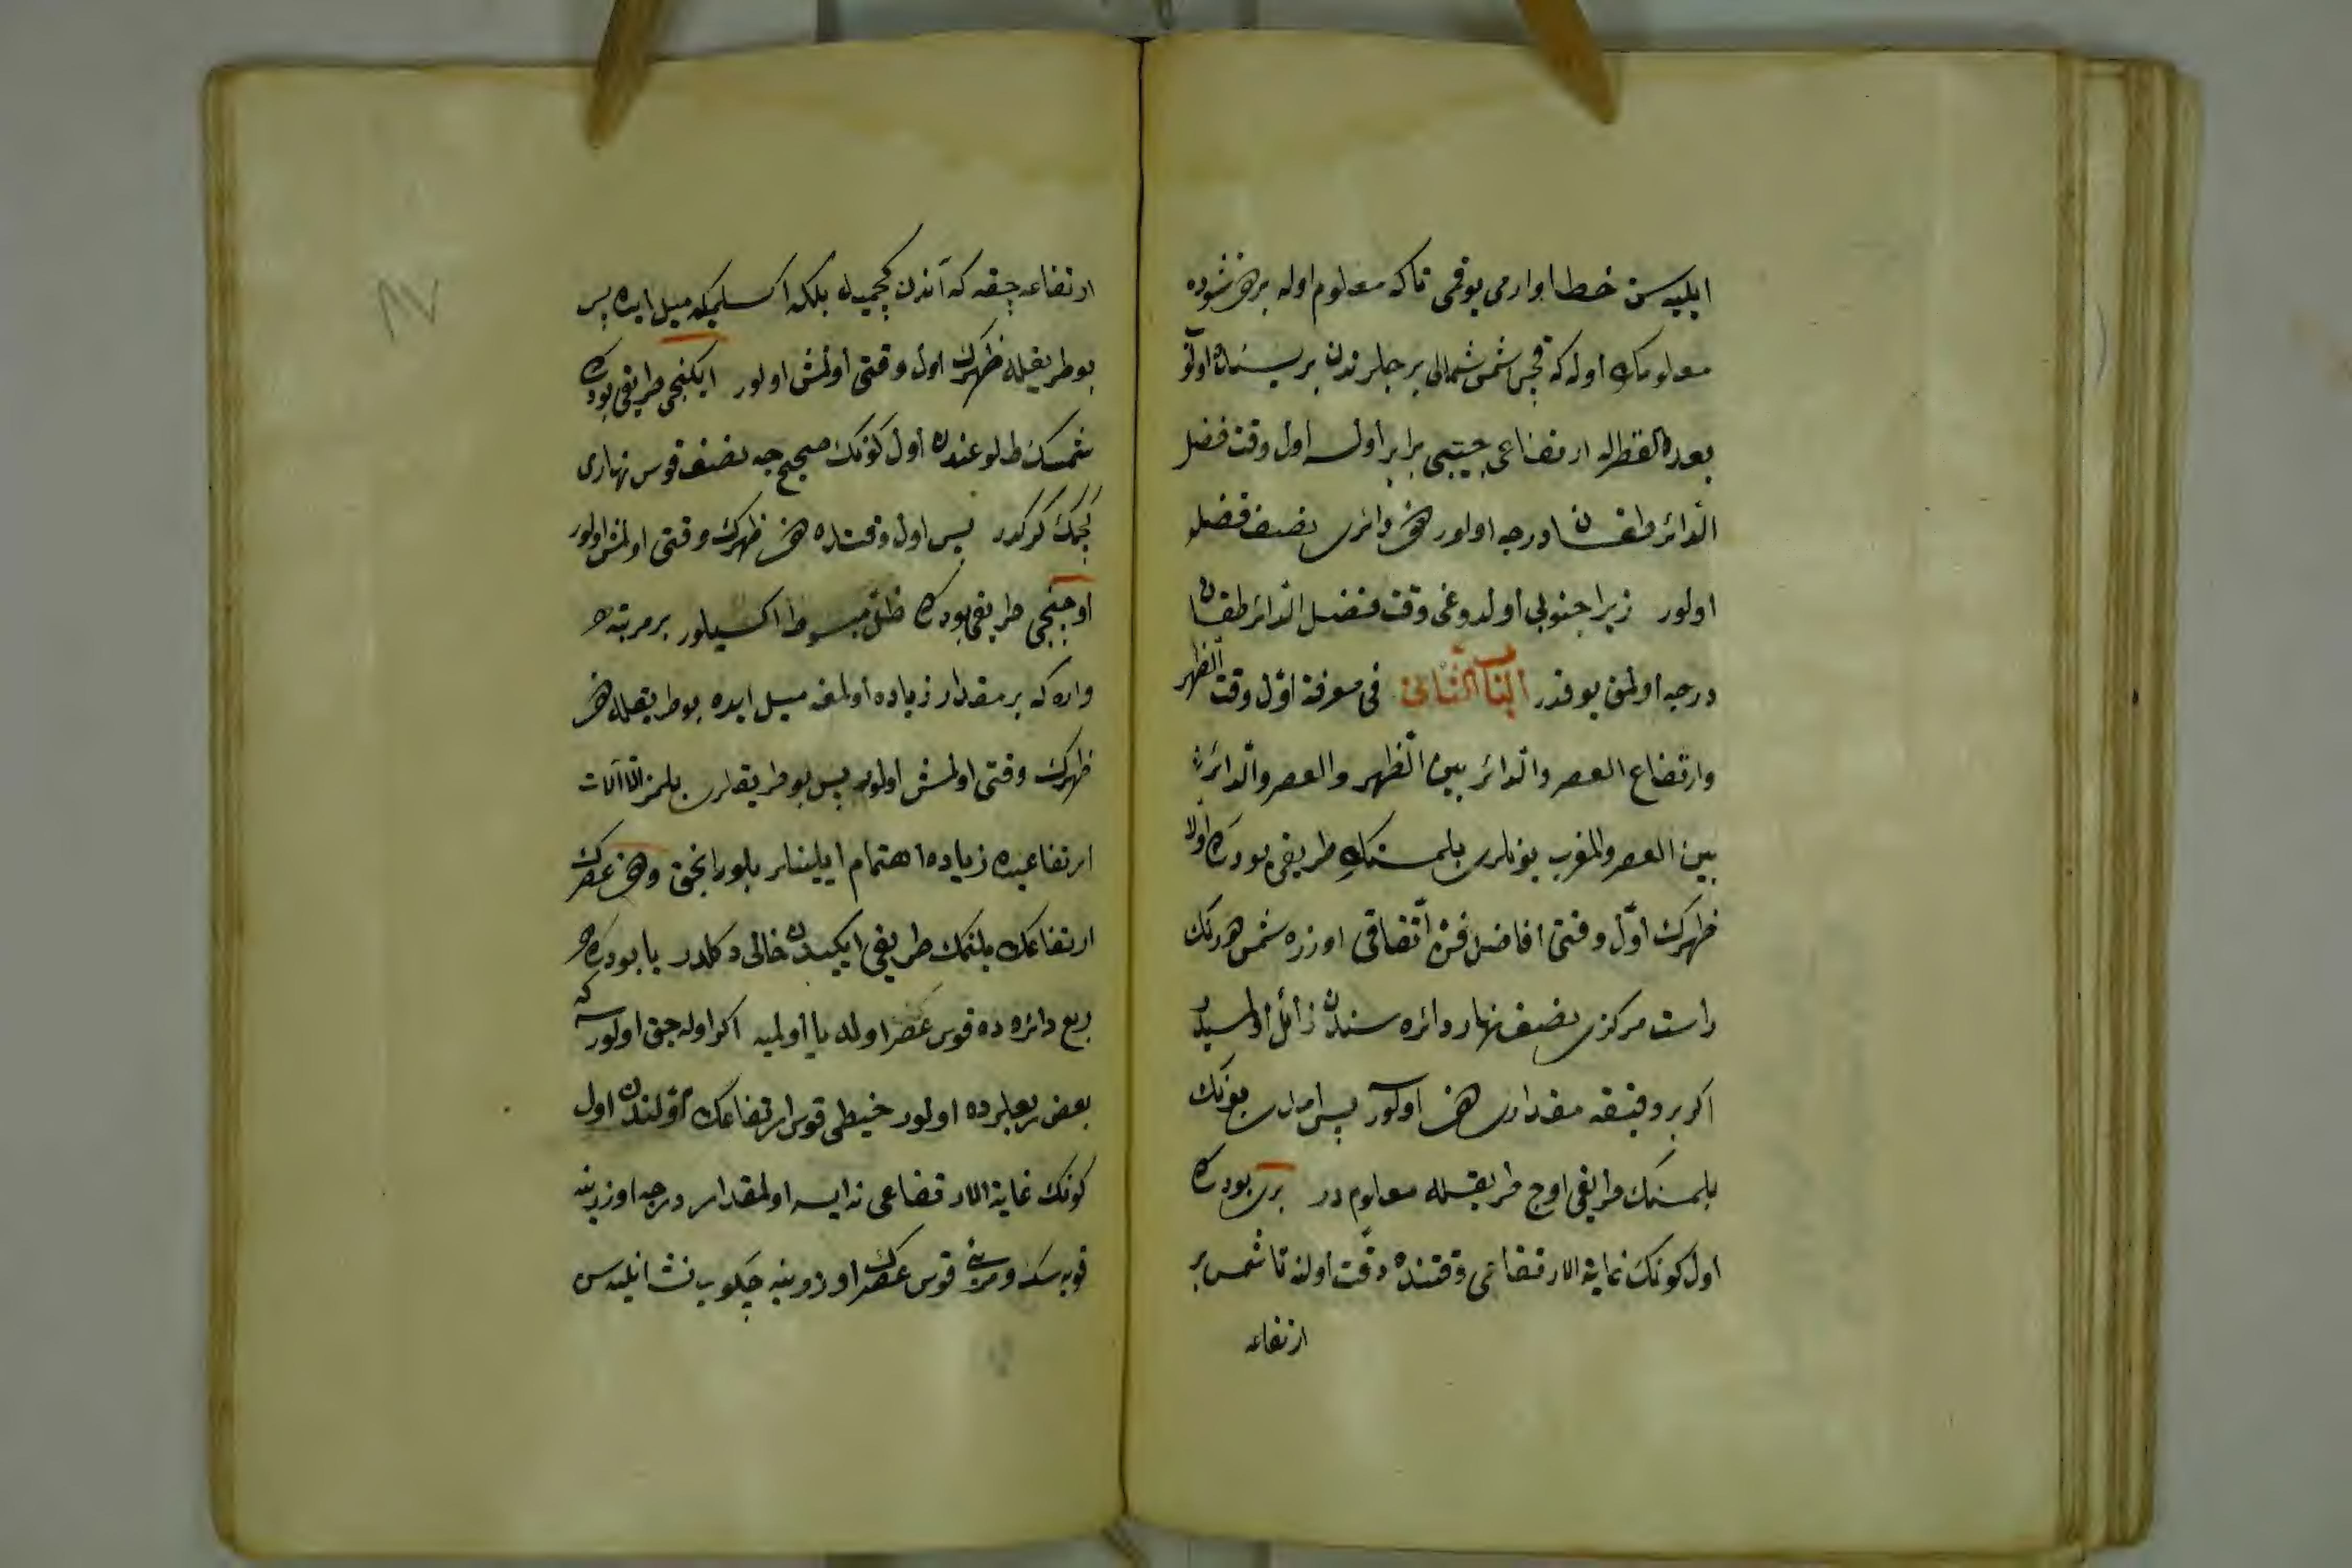 ایلیه سن خطا وارمی یوقمی تاکه معلوم اوله بر هم شوده
معلومك اوله که قچن شمس شمالی برجلرندن بریسنده اولو
بعده القطرله ارتفاعی جیبی برابر اولسه اول وقت فضل
الدائر طقسان درجه اولور هم دائری نصف فضل
اولور زیرا جنوبی اولدوغی وقت فضل الدائر طقسان
درجه اولمق یوقدر الباب الثانی فی معرفة اول وقت الظهر
وارتفاع العصر والدائر بین الظهر والعصر والدائر
بین العصر والمغرب بونلری بلمسنك طریقی بودرکه اولا
ظهرك اول وقتی افاضل فن اتفاقی اوزره شمس هر نك
راست مرکزی نصف نهار دائره سندن زائل اولسیدر
اکر بر دقیقه مقداری هم اولور پس امدی بونك
بلمسنك طریقی اوج طریقله معلوم در بری بودرکه
اول کونك غایة الارتفاعی وقتنده دقت اولنه تا شمس بر
ارتفاعه
ارتفاعه چقه که آندن کچمیه بلکه اکسلمیکه میل ایده پس
بو طریقله ظهرك اول وقتی اولمش اولور ایکنجی طریقی بودرکه
شمسك طلوعندن اول کونك صحیح جه نصف قوس نهاری
کچمك کرکدر پس اول وقتده هم ظهرك وقتی اولمش اولور
اوچنجی طریقی بودرکه ظل مبسوط اکسیلور بر مرتبه
واره که بر مقدار زیاده اولمغه میل ایده بو طریقله هم
ظهرك وقتی اولمش اولور پس بو طریقلری بلمز الا آلات
ارتفاعیده زیاده اهتمام ایلینلر بلور انجق وهم عصرك
ارتفاعك بلنمك طریقی ایکیدن خالی دکلدر یا بودرکه
ربع دائره ده قوس عصر اوله یا اولمیه اکر اوله جق اولورسه که
بعض ربعلرده اولور خیطی قوس ارتفاعك اولندن اول
کونك غایة الارتفاعی نه ایسه اولمقدار درجه اوزرینه
قویه سك ومری قوس عصرك اوزرینه چکوب نشان ایلیه سن